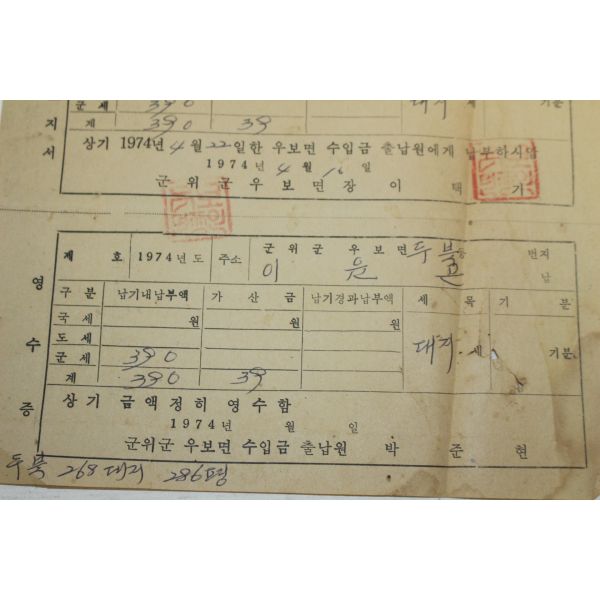 군 세 390 대지 세 기분
지 계 390 39
서 상기 1974년 4 월 22일한 우보면 수입금 출납원에게 납부하시압
1974 년 4 월 16 일
군 위 군 우 보 면 장 이 택 기
제 호 1974년 도 주소 군 위 군 우 보 면 두북 동 번지
이 윤 납
영 구 분 납기내납부액 가 산 금 납기경과납부액 세 목 기 분
국 세 원 원 원
수 도 세 대지 세 기분
군 세 390
계 390 39
증 상 기 금 액 정 히 영 수 함
1974 년 월 일
군위군 우보면 수입금 출납원 박 준 현
두북 268 대지 286평